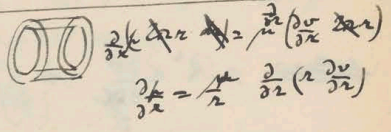 ∂/∂x p 2πr dr = μ ∂/∂r (∂v/∂r 2πr)
∂p/∂x = μ/r ∂/∂r (r ∂v/∂r)